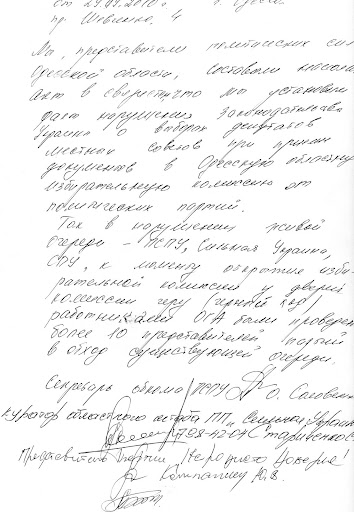 от 29.09.2010 г. Одесса
пр. Шевченко, 4
Мы, представители политических сил
Одесской области, составили настоящий
акт в свидетельство мы установили
факт нарушения Законодательства
Украины о выборах депутатов
местных советов при приеме
документов в Одесскую областную
избирательную комиссию от
политических партий.
Так в нарушении живой
очереди - ПСПУ, Сильная Украина,
СПУ, к моменту открытия изби-
рательной комиссии у дверей
комиссии через (черный ход)
работниками ОГА были проведены
более 10 представителей партий
в обход существующей очереди.
Секретарь обкома ПСПУ О.
куратор областного ПП "Сильная Украина"
798-42-04
Представитель партии "Народного Доверия"
Ю.В.